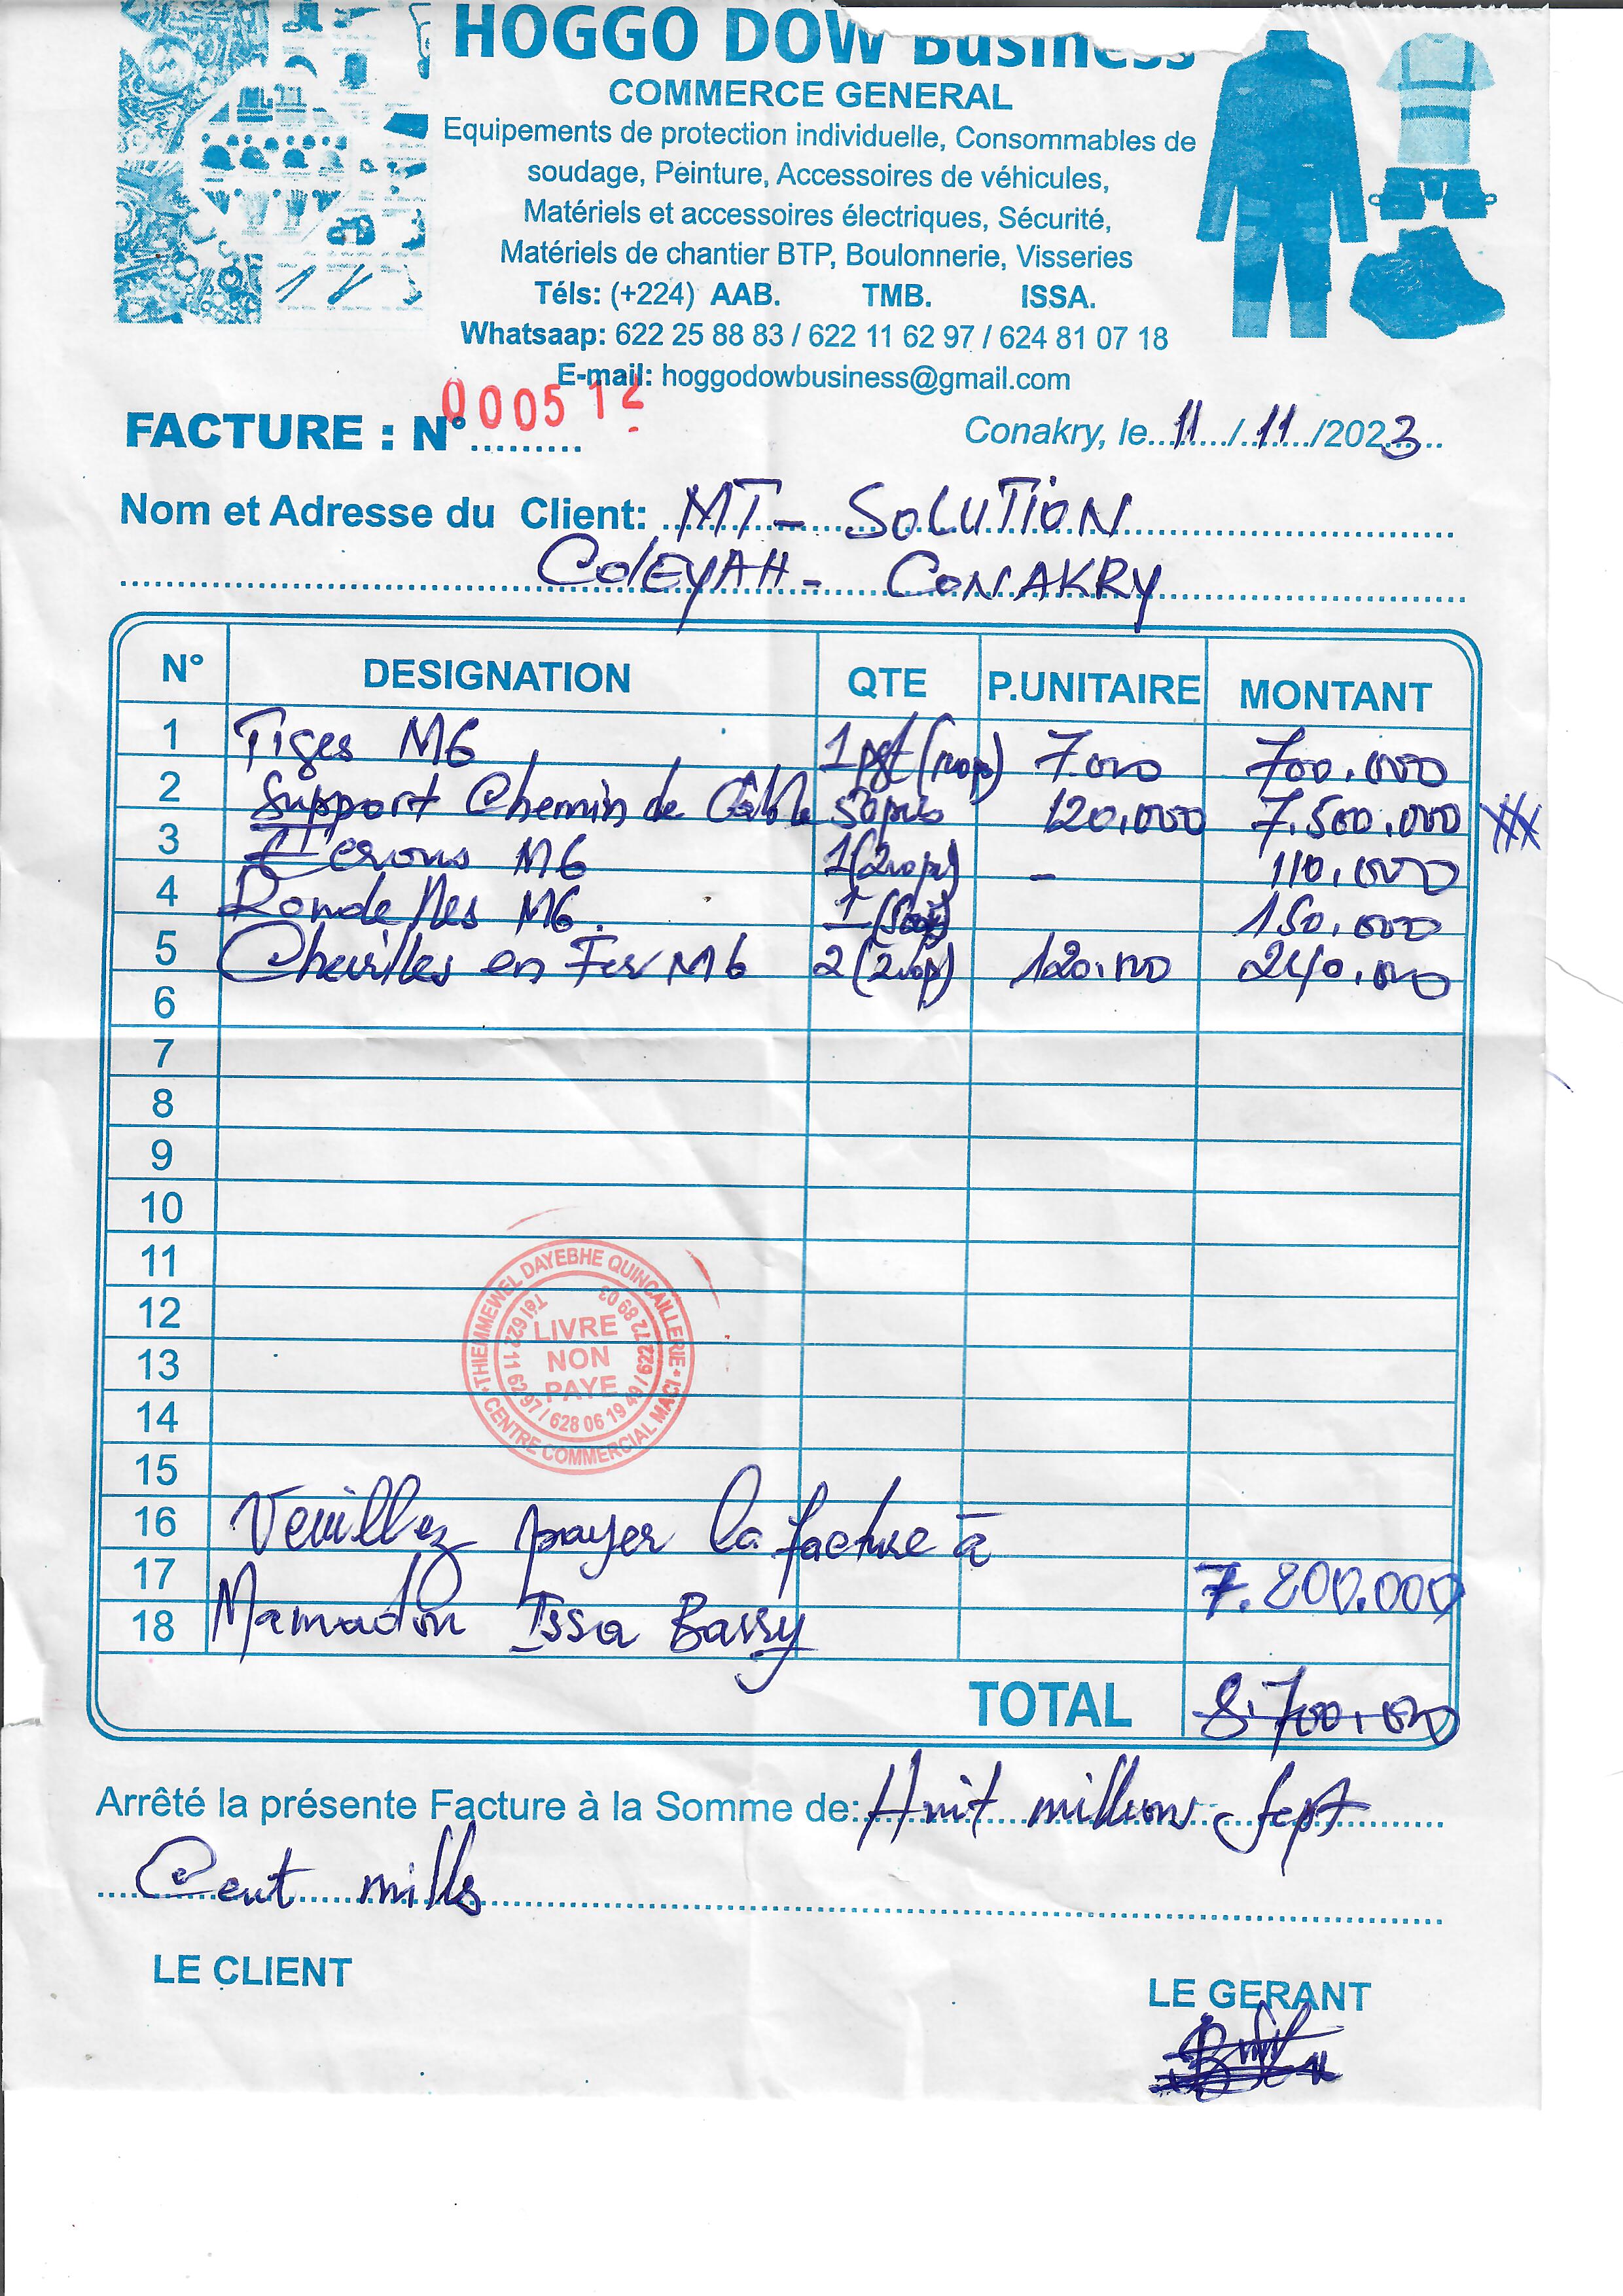 HOGGO DOW Business
COMMERCE GENERAL
Equipements de protection individuelle, Consommables de
soudage, Peinture, Accessoires de véhicules,
Matériels et accessoires électriques, Sécurité,
Matériels de chantier BTP, Boulonnerie, Visseries
Téls: (+224) AAB. TMB. ISSA.
Whatsaap: 622 25 88 83 / 622 11 62 97 / 624 81 07 18
E-mail: hoggodowbusiness@gmail.com
FACTURE : N° 000512
Conakry, le 11 / 11 /2023
Nom et Adresse du Client: MT- SOLUTION
COLEYAH- CONAKRY
N° DESIGNATION QTE P.UNITAIRE MONTANT
1 Tiges M6 7.000 700.000
2 Support Chemin de Câble 50pcs 120.000 7.500.000
3 Ecrous M6 1(200p) - 110.000
4 Rondelles M6 150.000
5 Chevilles en Fer M6 2(200p) 120.000 240.000
6
7
8
9
10
11
12
13
14
15
16 Veuillez payer la facture à
17 7.800.000
18 Mamadou Issa Barry
THIEMMEWEL DAYEBHE QUINCAILLERIE
CENTRE COMMERCIAL MACI
Tél 622 11 62 97 / 628 06 19 49 / 622 72 89 03
LIVRE
NON
PAYE
TOTAL 8.700.000
Arrêté la présente Facture à la Somme de: Huit millions sept
Cent mille
LE CLIENT
LE GERANT